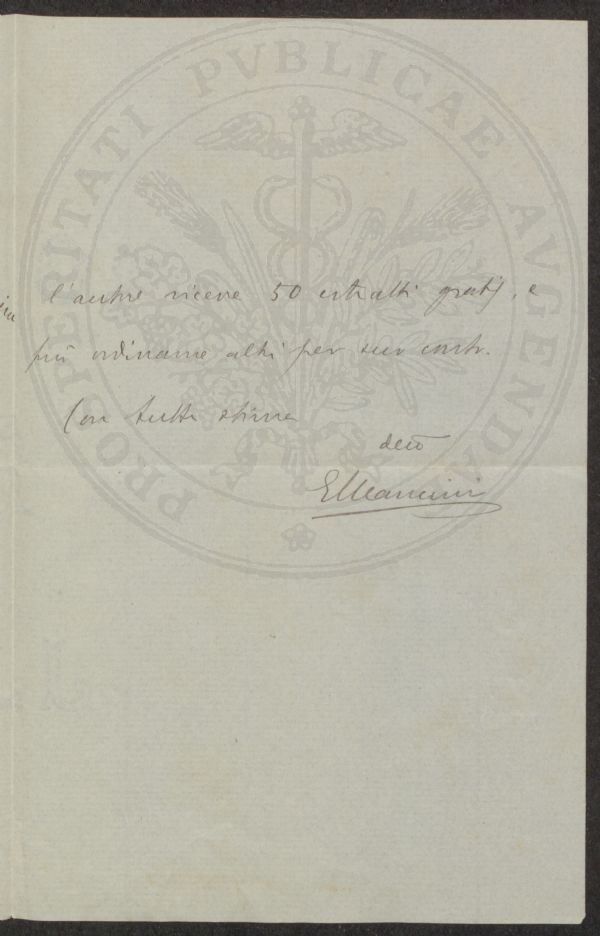 PROSPERITATI PVBLICAE AVGENDAE
l'autore riceve 50 estratti gratis, e
può ordinarne altri per suo conto.
Con tutta stima
devō
EMancini